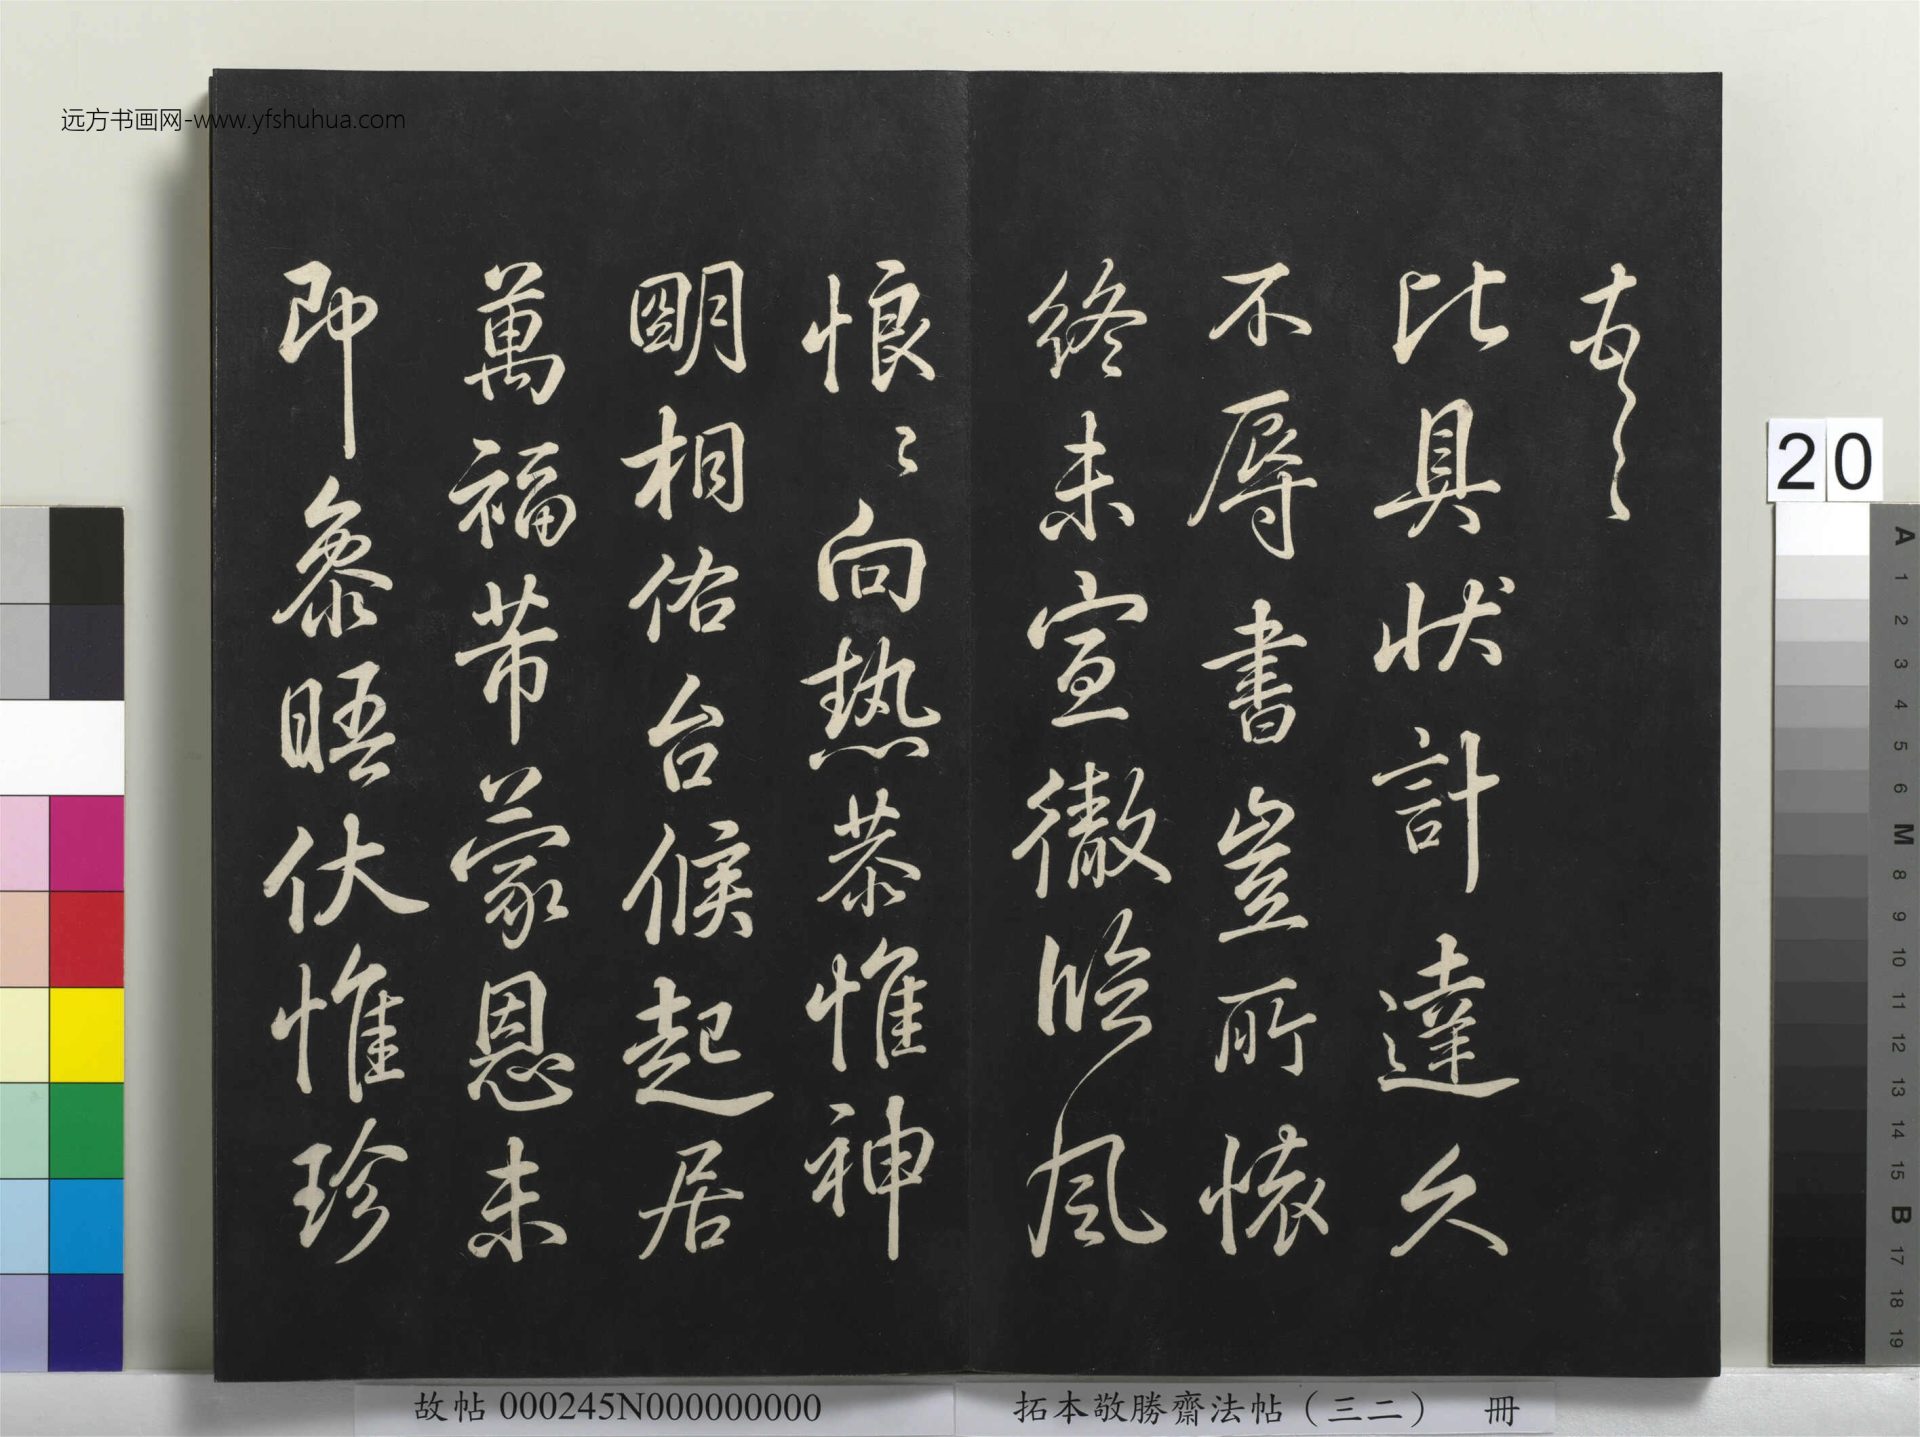 远方书画网-www.yfshuhua.com
比具状計達久
不辱書豈所懷
終未宣徹臨風
恨々向热恭惟神
明相佑台候起居
萬福芾蒙恩未
即參晤伏惟珍
20
A
1
2
3
4
5
6
M
8
9
10
11
12
13
14
15
B
17
18
19
故帖 000245N000000000
拓本敬勝齋法帖（三二） 冊